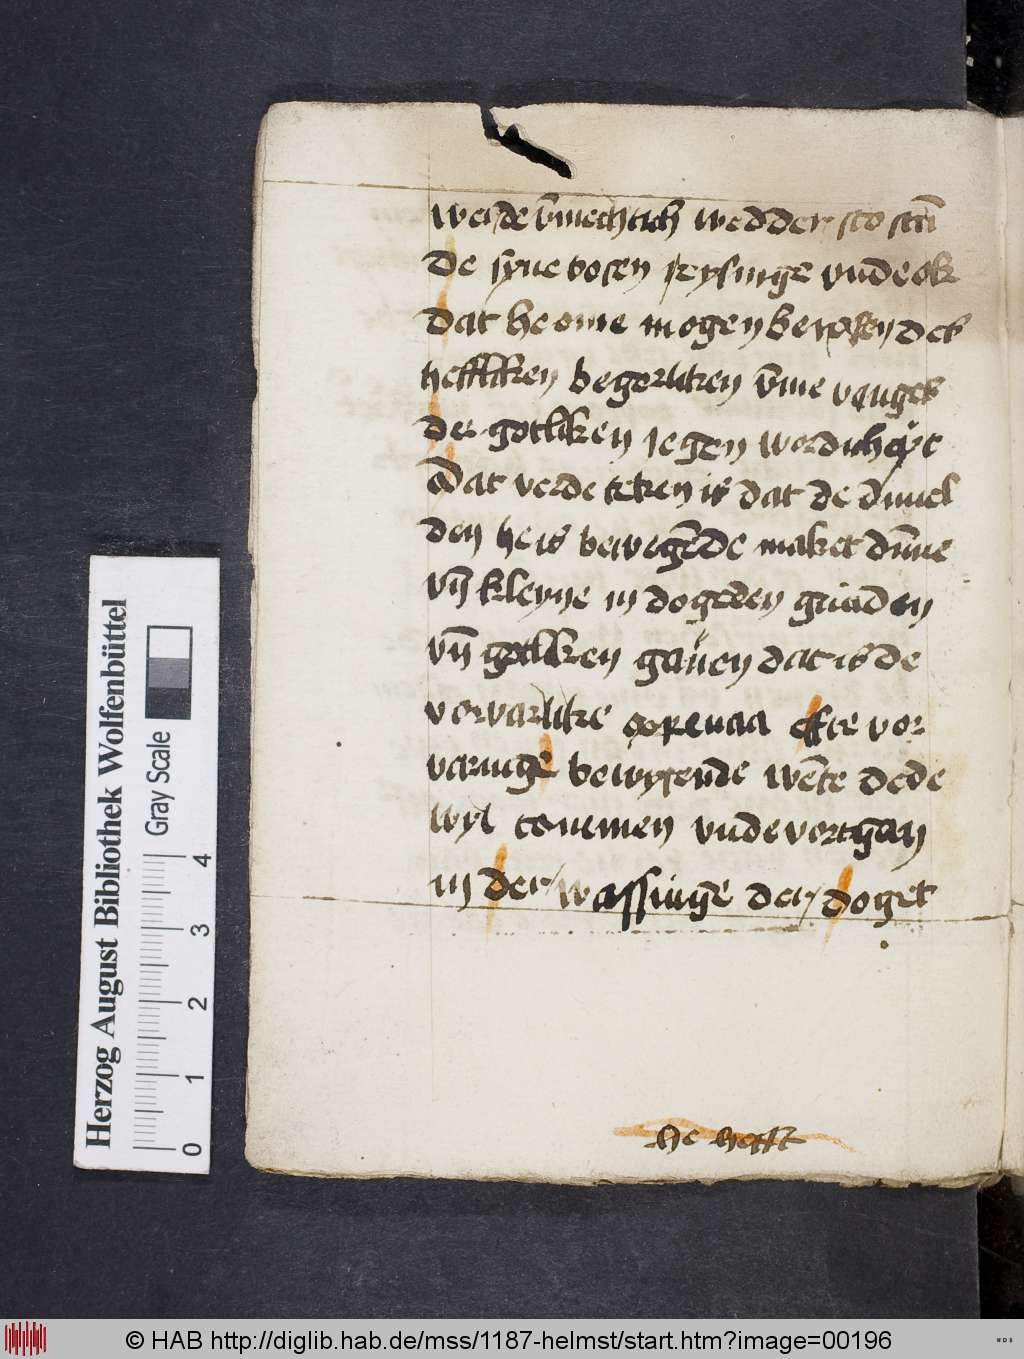 werde vmechtich wedder sto stan
de syne bosen ye vnde ok
dat he ome mogen des
hefftiken begerliken vme vanges
der gotliken iegen wordicheyt
Dat verde teken is dat de duuel
den he is bewegede maket dune
vn kleyne in dogeden gnaden
vn gotliken gauen dat is de
vorvarlike effte vor
varnige bewysende wete dede
wyl tonemen vnde vortgan
in der wassinge der doget
he hefft
Herzog August Bibliothek Wolfenbüttel
Gray Scale
0 1 2 3 4
© HAB http://diglib.hab.de/mss/1187-helmst/start.htm?image=00196
WDB